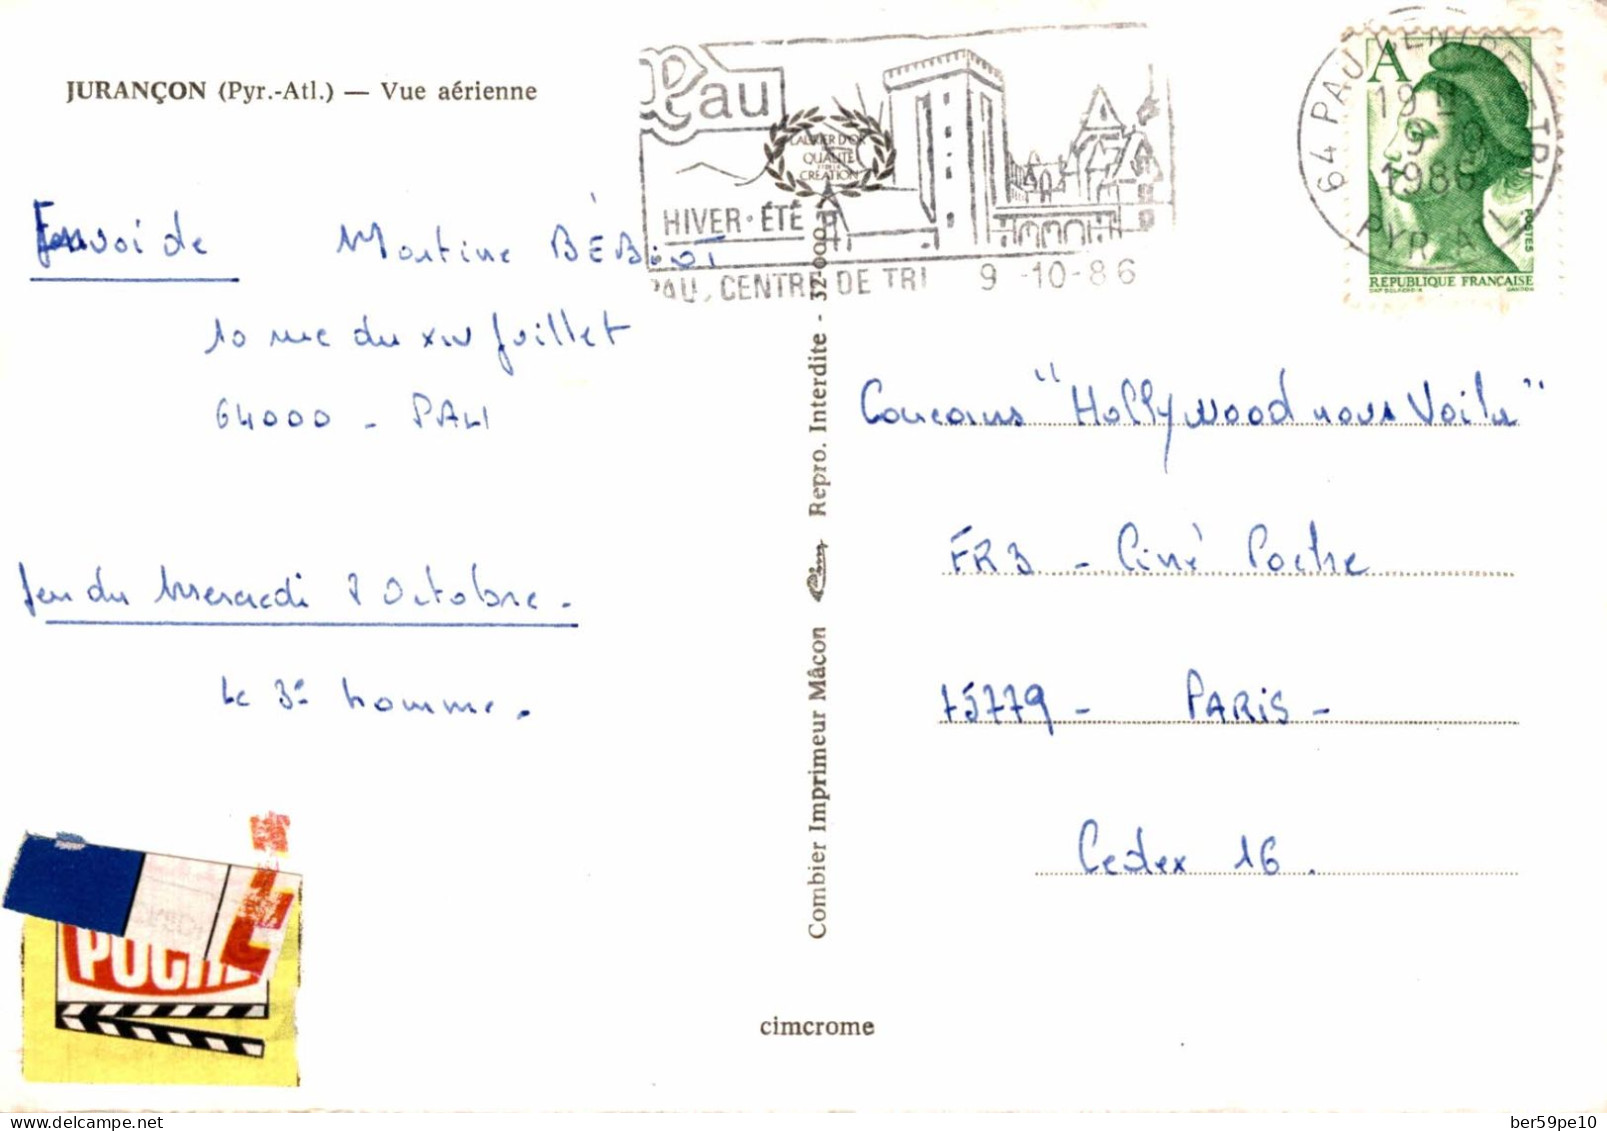 JURANÇON (Pyr.-Atl.) — Vue aérienne
Pau
LAURIER D'OR
QUALITÉ
CRÉATION
HIVER · ÉTÉ
PAU, CENTRE DE TRI 9 -10-86
64 PAU CENTRE DE TRI
19 H
9 10
1986
PYR ATL
A
POSTES
REPUBLIQUE FRANÇAISE
Envoi de Martine
10 rue du XIV Juillet
64000 - PAU
Jeu du Mercredi 8 Octobre.
le 3e homme.
Concours "Hollywood nous Voila"
FR3 - Ciné Poche
75779 - PARIS -
Cedex 16.
Combier Imprimeur Mâcon Repro. Interdite - 32-000
POCHE
cimcrome
delcampe.net
ber59pe10